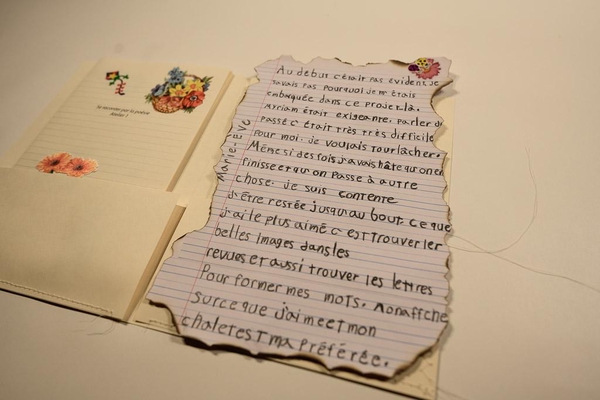 Au début c'était pas évident je
savais pas pourquoi je m'étais
embarquée dans ce projet là.
Myriam était exigeante. parler du
passé c'était très très difficile
pour moi. je voulais tout lâcher.
Même si des fois j'avais hâte qu'on en
finisse et qu'on passe à autre
chose. je suis contente
d'être restée jusqu'au bout. ce que
j'ai le plus aimé c'est trouver les
belles images dans les
revues et aussi trouver les lettres
pour former mes mots. Mon affiche
sur ce que j'aime et mon
chalet est ma préférée.
Marie-Ève